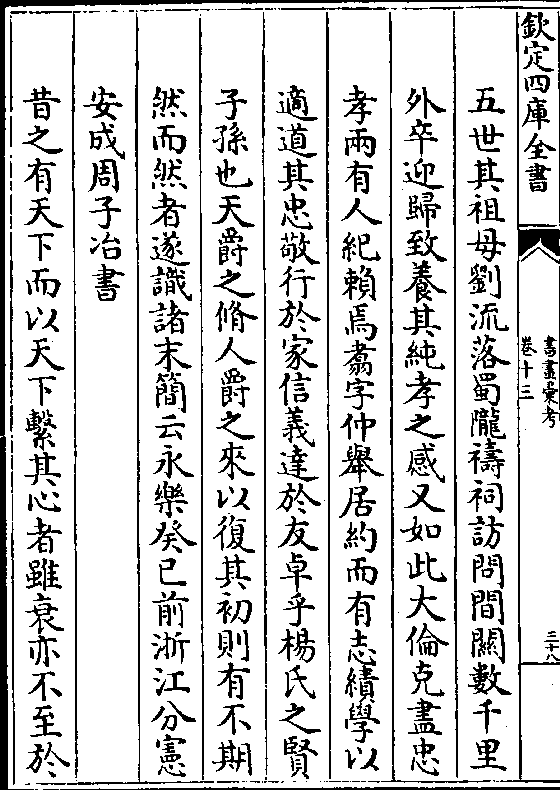 欽定四庫全書
書畫彙考
卷十三
三十八
五世其祖母劉流落蜀隴禱祠訪問間關數千里
外卒迎歸致養其純孝之感又如此大倫克盡忠
孝兩有人紀賴焉翥字仲舉居約而有志績學以
適道其忠敬行於家信義達於友卓乎楊氏之賢
子孫也天爵之脩人爵之來以復其初則有不期
然而然者遂識諸末簡云永樂癸巳前浙江分憲
安成周子冶書
昔之有天下而以天下繫其心者雖衰亦不至於